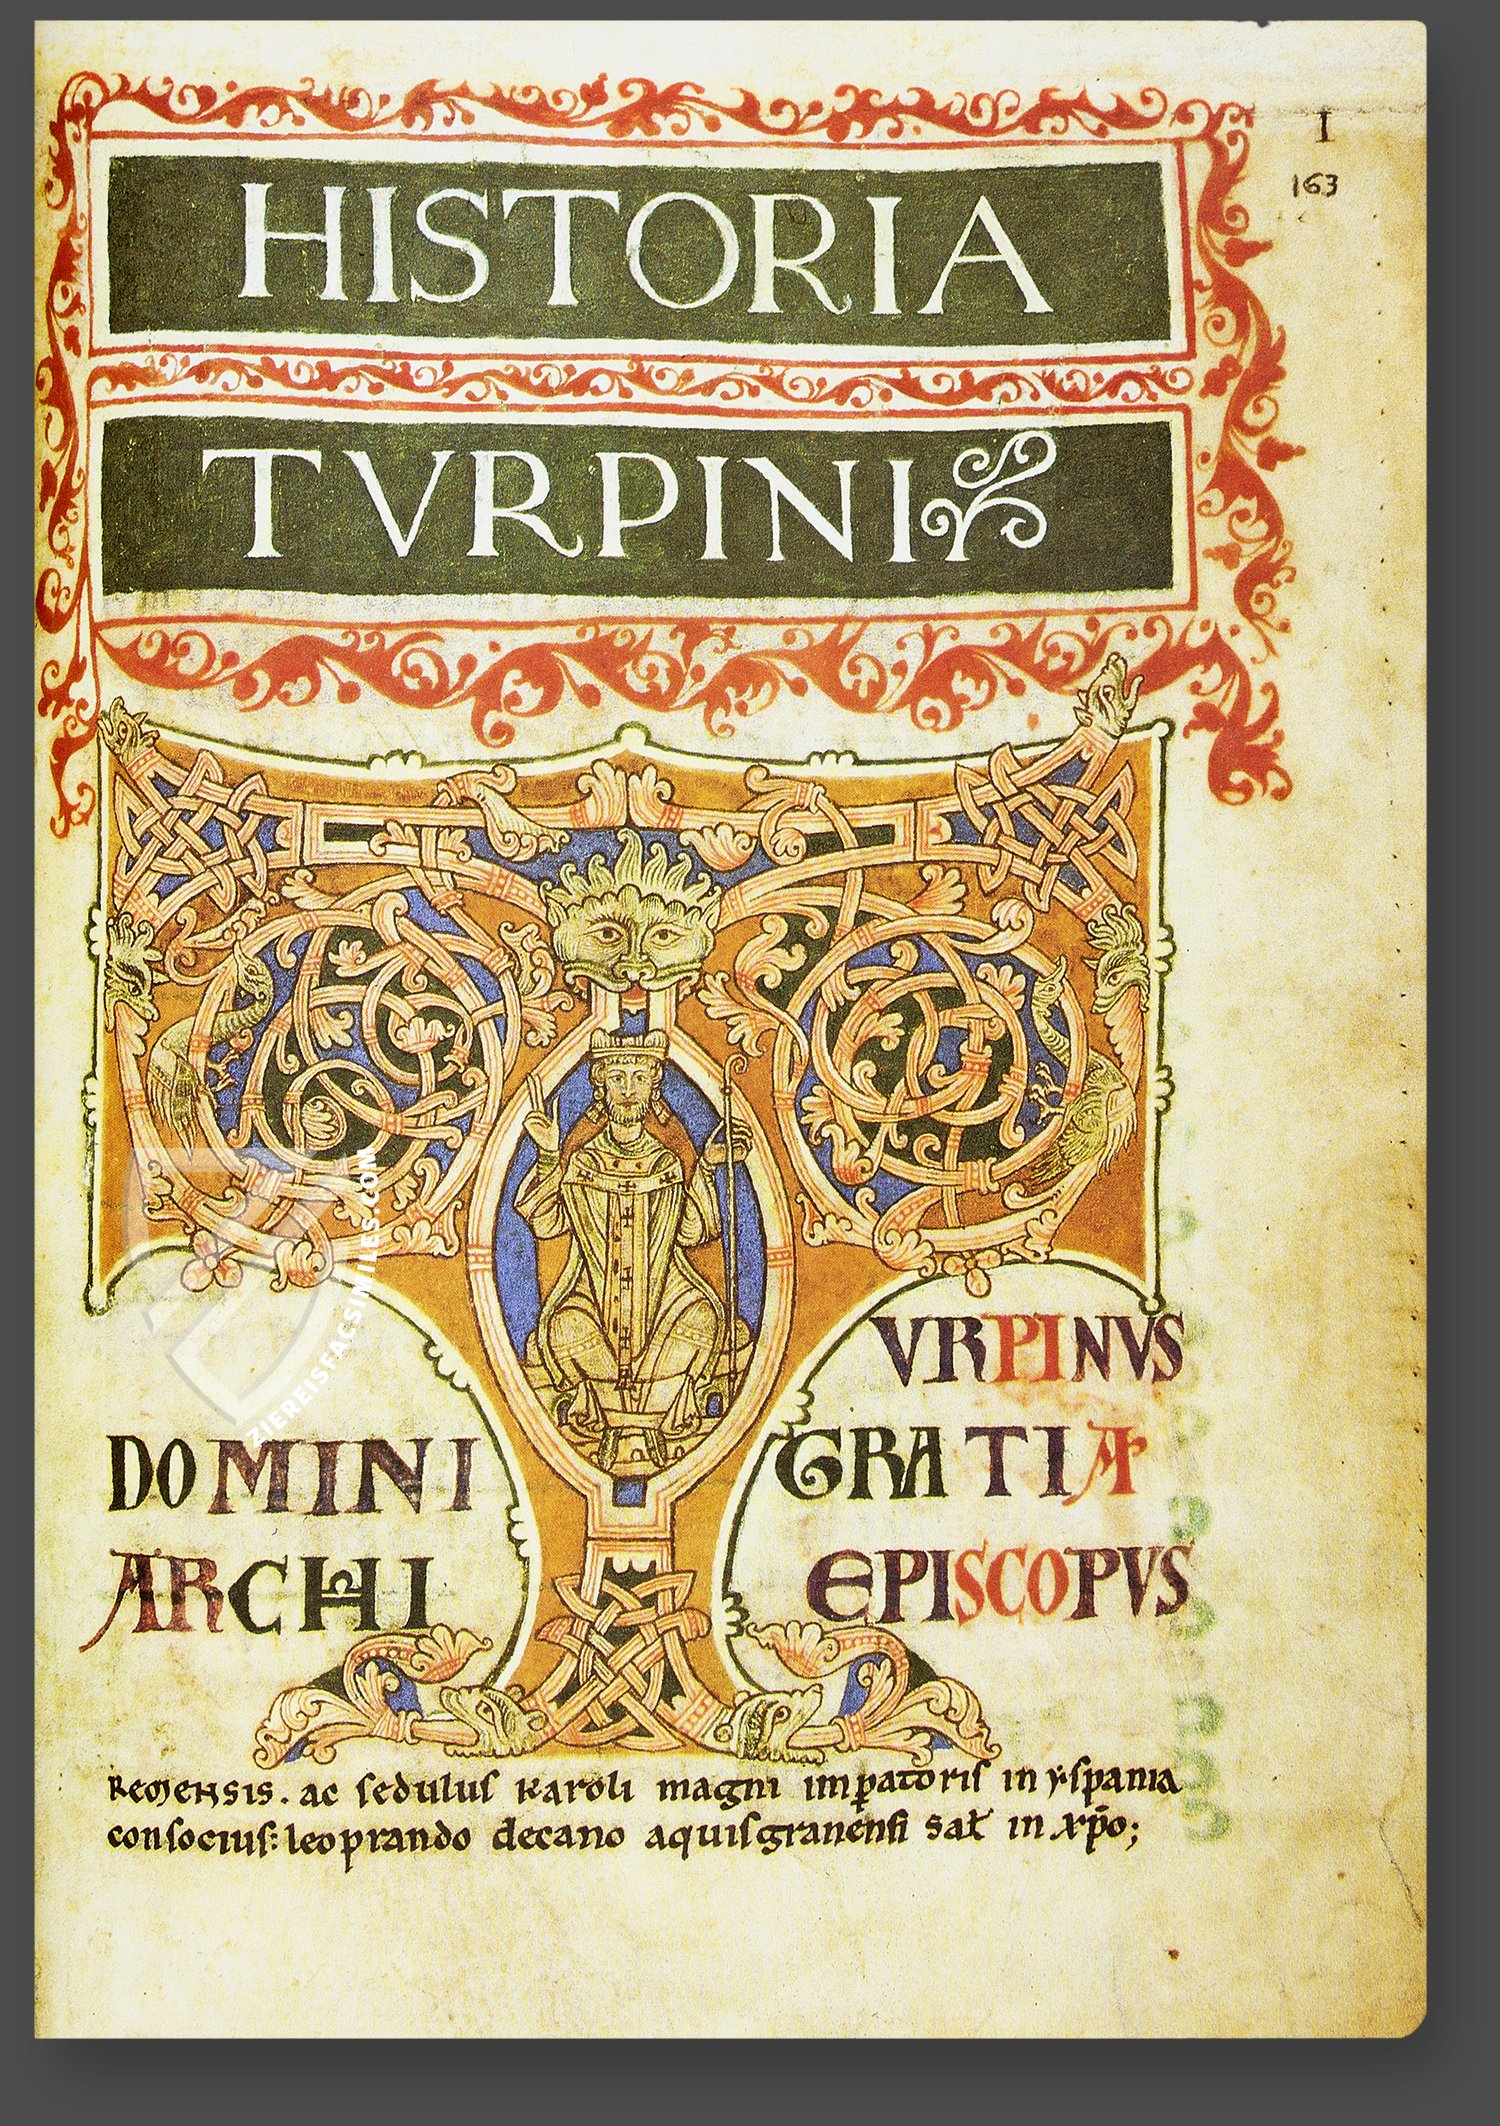 I
163
HISTORIA
TVRPINI
TVRPINVS
DOMINI GRATIA
ARCHI EPISCOPVS
REMENSIS. ac sedulus karoli magni imꝑatoris in yspania
consocius: leoprando decano aquisgranensi sał in xp̄o;
ZIEREISFACSIMILES.COM